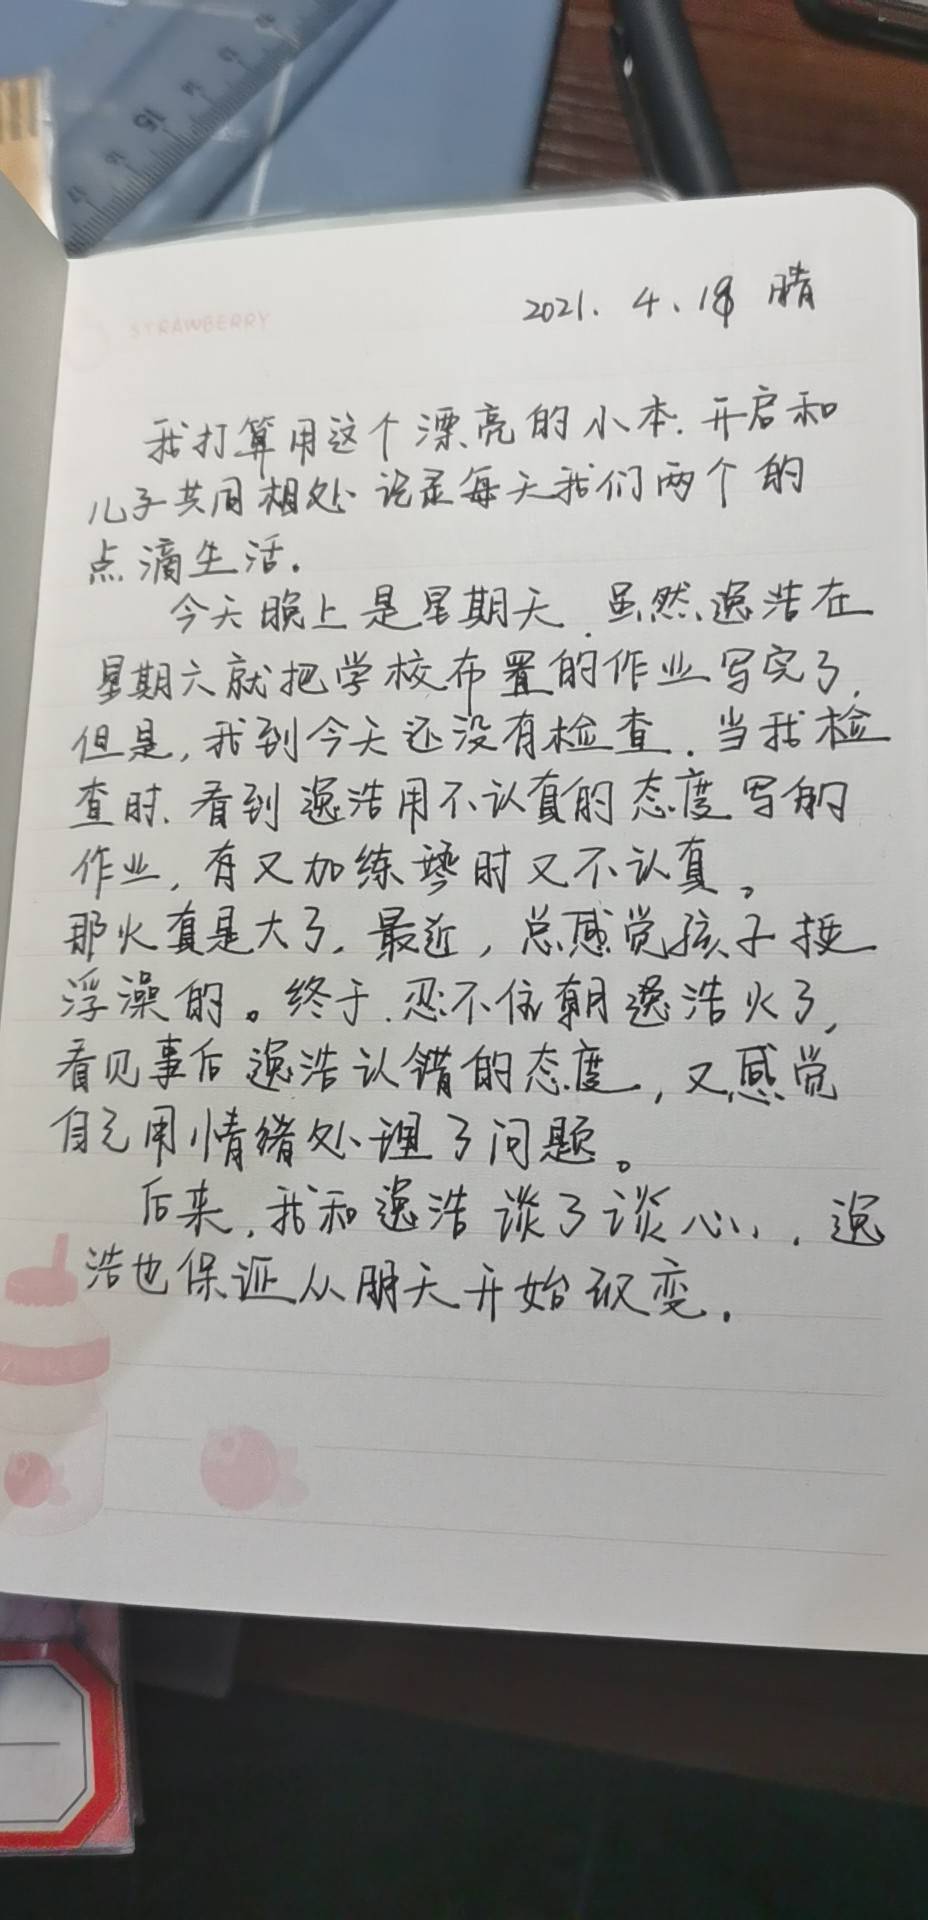 STRAWBERRY
2021. 4. 18 晴
我打算用这个漂亮的小本.开启和
儿子共同相处 记录每天我们两个的
点滴生活.
今天晚上是星期天.虽然逸浩在
星期六就把学校布置的作业写完了,
但是,我到今天还没有检查.当我检
查时.看到逸浩用不认真的态度写的
作业,有又加练琴时又不认真。
那火真是大了.最近,总感觉孩子挺
浮澡的。终于.忍不住朝逸浩火了,
看见事后逸浩认错的态度,又感觉
自己用情绪处理了问题。
后来,我和逸浩谈了谈心,.逸
浩也保证从明天开始改变.